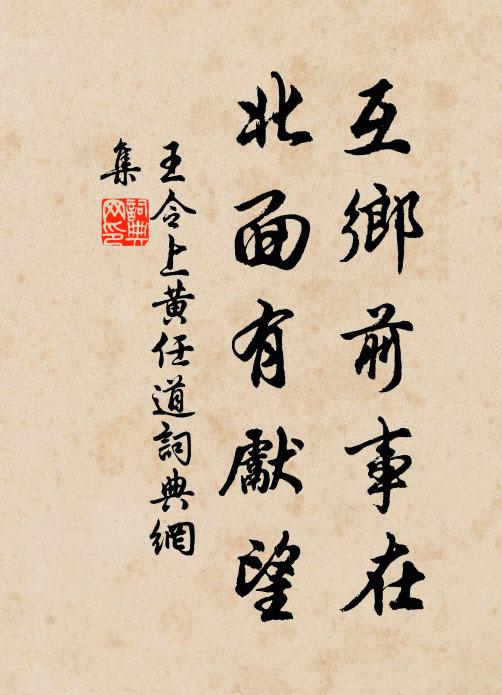 互鄉前事在
北面有獻望
王令上黃任道詞典網
集
詞典
网印